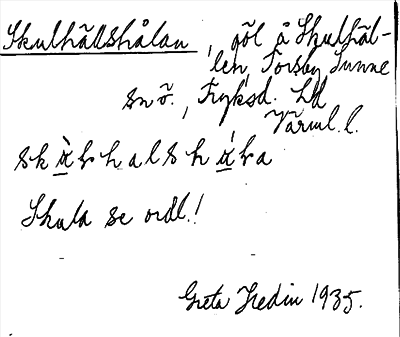 Skulhällshålan, göl å Skulhäl-
len, Torsby Sunne
snö., Fryksd. hd
Värml. l.
Skula se ordl.!
Greta Hedin 1935.